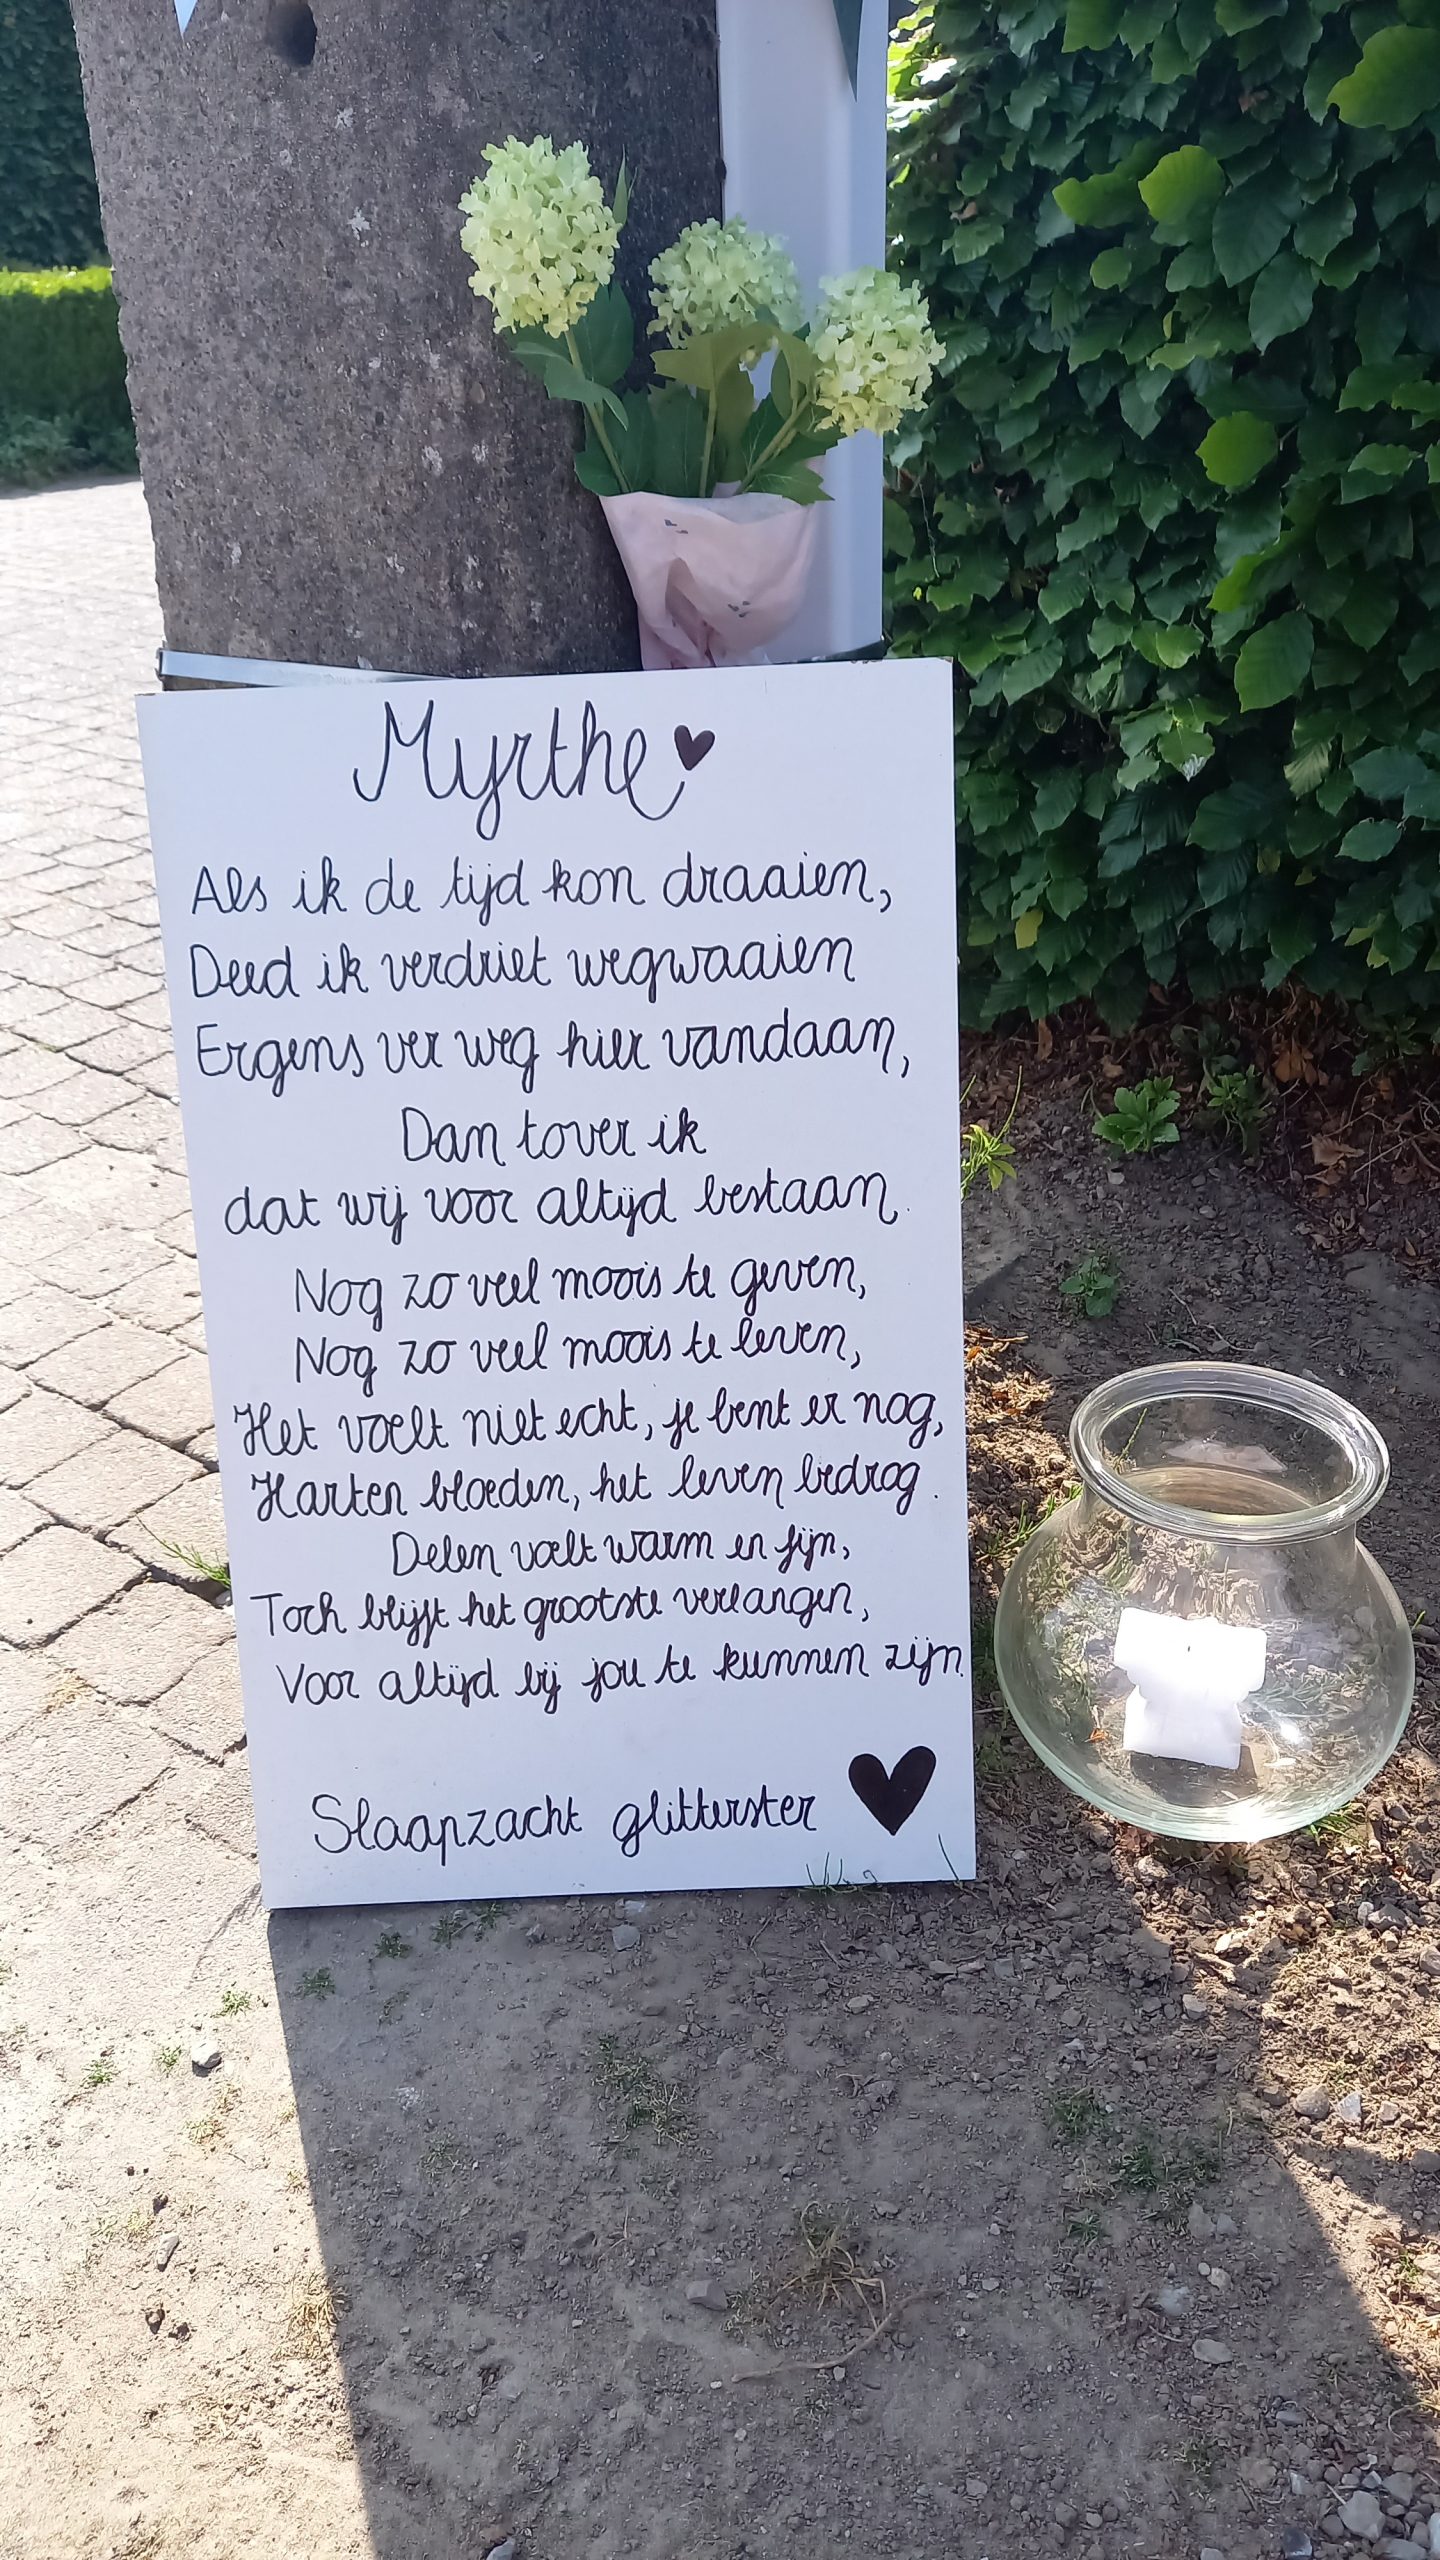 Myrthe
Als ik de tijd kon draaien,
Deed ik verdriet wegwaaien
Ergens ver weg hier vandaan,
Dan tover ik
dat wij voor altijd bestaan.
Nog zo veel moois te geven,
Nog zo veel moois te leven,
Het voelt niet echt, je bent er nog,
Harten bloeden, het leven bedrog.
Delen voelt warm en fijn,
Toch blijft het grootste verlangen,
Voor altijd bij jou te kunnen zijn.
Slaapzacht glitterster